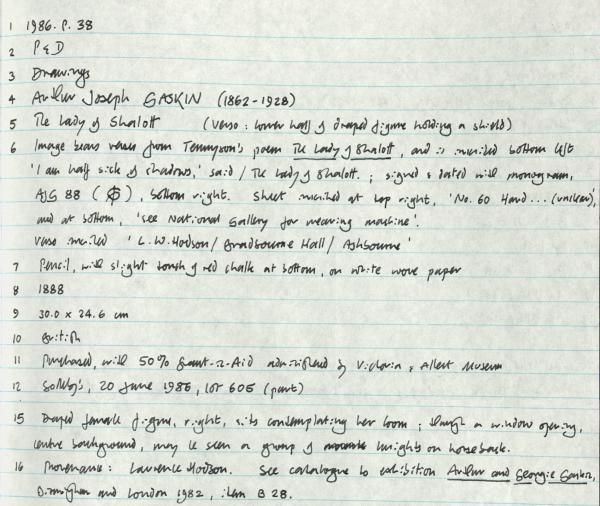 1 1986. P. 38
2 P & D
3 Drawings
4 Arthur Joseph GASKIN (1862-1928)
5 The Lady of Shalott (Verso: lower half of draped figure holding a shield)
6 Image bears verses from Tennyson's poem The Lady of Shalott, and is inscribed bottom left
'I am half sick of shadows,' said / The Lady of Shalott. ; signed & dated with monogram,
AJG 88 ( ), bottom right. Sheet inscribed at top right, 'No. 60 Hand... (unclear)',
and at bottom, 'see National Gallery for weaving machine'.
Verso inscribed 'L.W. Hodson / Bradbourne Hall / Ashbourne'
7 Pencil, with slight touch of red chalk at bottom, on white wove paper
8 1888
9 30.0 x 24.6 cm
10 British
11 Purchased, with 50% Grant-in-Aid administered by Victoria & Albert Museum
12 Sotheby's, 20 June 1986, lot 605 (part)
15 Draped female figure, right, sits contemplating her loom ; through a window opening,
centre background, may be seen a group of knights on horseback.
16 Provenance: Laurence Hodson. See catalogue to exhibition Arthur and Georgie Gaskin,
Birmingham and London 1982, item B 28.